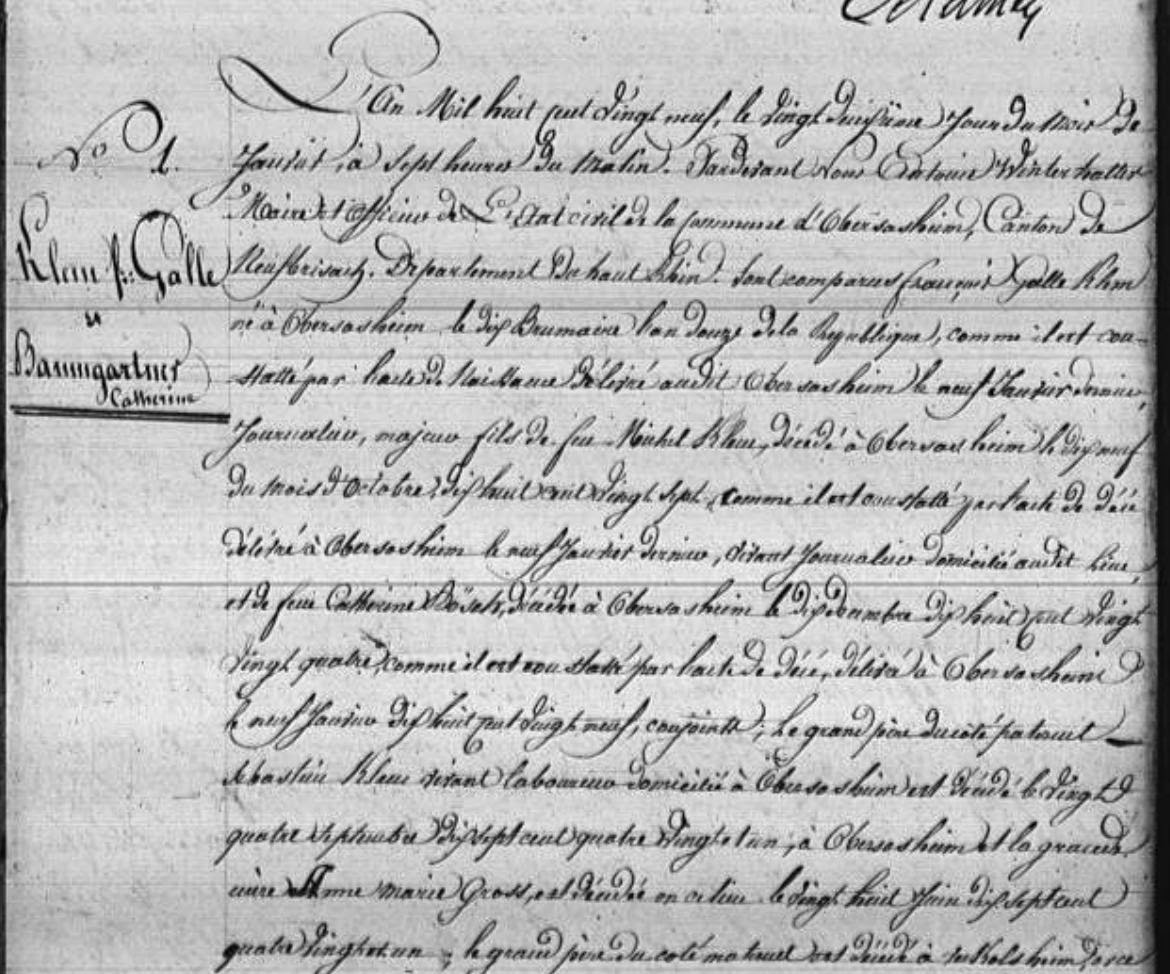 No 1.
Klem fs: Galle
et
Baumgartner
Catherine
L'An Mil huit cent vingt neuf, le vingt deuxième jour du mois de
Janvier, à sept heures du matin. Pardevant Nous Antoine Winterhalter
Maire et officier de L'Etat civil de la commune d'Obersasheim, Canton de
Neufbrisach. Departement du haut Rhin. Sont comparus françois Galle Klem
né à Obersasheim le dix Brumaire l'an douze de la Republique, comme il est con-
statté par l'acte de Naissance délivré audit Obersasheim le neuf Janvier dernier,
Journalier, majeur fils de feu Michel Klem, décédé à Obersasheim le dix neuf
du mois d'Octobre, dix huit cent vingt sept, comme il est constatté par l'acte de décé
délivré à Obersasheim le neuf Janvier dernier, vivant Journalier domicilié audit lieu,
et de feue Catherine Bösch, décédée à Obersasheim le dix décembre dix huit cent vingt
vingt quatre, comme il est constatté par l'acte de décé, délivré à Obersasheim
le neuf Janvier dix huit cent vingt neuf, conjoints; Le grand père du coté paternel
Sebastien Klem vivant laboureur domicilié à Obersasheim est décédé le vingt
quatre Septembre dix sept cent quatre vingt et un, à Obersasheim et la grande
mère Anne marie Gross, est décédée en ce lieu le vingt huit Juin dix sept cent
quatre vingt et un; le grand père du coté maternel est décédé à